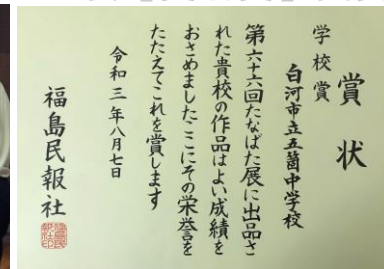 賞状
学校賞
白河市立五箇中学校
第六十六回たなばた展に出品さ
れた貴校の作品はよい成績を
おさめました ここにその栄誉を
たたえてこれを賞します
令和三年八月七日
福島民報社